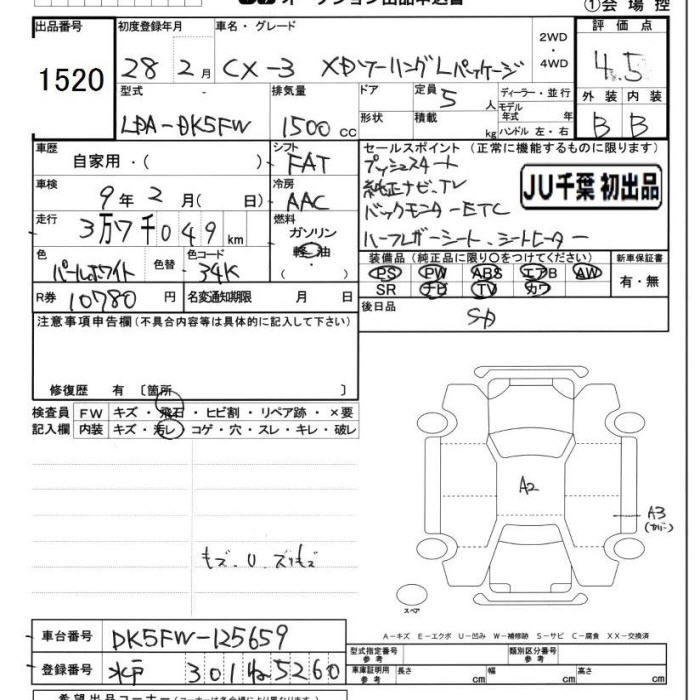 オークション出品申込書
①会場控
出品番号
1520
初度登録年月
28 2月
車名・グレード
CX-3 XDツーリングLパッケージ
2WD
・
4WD
評価点
4.5
型式
LDA-DK5FW
排気量
1500 cc
ドア
形状
定員 5 人
積載 kg
ディーラー・並行
モデル年式 年
ハンドル 左・右
外装 内装
B B
車歴
自家用・( )
シフト
FAT
セールスポイント (正常に機能するものに限ります)
プッシュスタート
純正ナビ・TV
バックモニターETC
ハーフレザーシート、シートヒーター
JU千葉 初出品
車検
9年2月( 日)
冷房
AAC
走行
3万7千049km
燃料
ガソリン
軽油
・
色
パールホワイト
色替
色コード
34K
装備品 (純正品に限り○をつけてください)
PS PW ABS エアB AW
SR ナビ TV カワ
新車保証書
有・無
R券 10780 円
名変通知期限 月 日
後日品
SD
注意事項申告欄 (不具合内容等は具体的に記入して下さい)
修復歴 有 〔箇所 〕
検査員 FW キズ・飛石・ヒビ割・リペア跡・×要
記入欄 内装 キズ・汚レ・コゲ・穴・スレ・キレ・破レ
A2
A3
(カバー)
キズ・U・スリキズ
スペア
A-キズ E-エクボ U-凹み W-補修跡 S-サビ C-腐食 XX-交換済
車台番号 DK5FW-125659
型式指定番号 参考
類別区分番号 参考
登録番号 水戸 301 ね 5260
車庫証明用 参考 長さ cm 幅 cm 高さ cm
希望出品コーナー